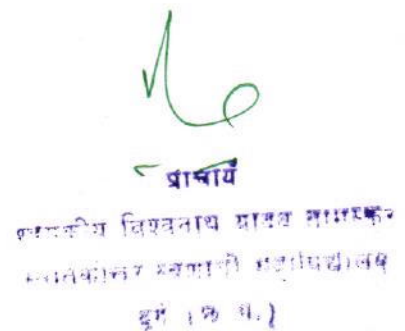 प्राचार्य
शासकीय विश्वनाथ यादव तामस्कर
स्नातकोत्तर स्वशासी महाविद्यालय
दुर्ग (छ.ग.)